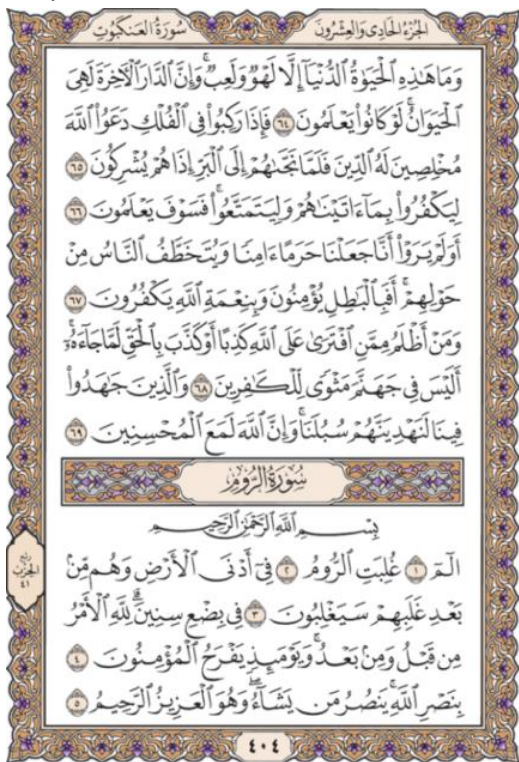 الجزء الحادي والعشرون
سورة العنكبوت
وَمَا هَٰذِهِ ٱلْحَيَوٰةُ ٱلدُّنْيَآ إِلَّا لَهْوٌ وَلَعِبٌ ۚ وَإِنَّ ٱلدَّارَ ٱلْءَاخِرَةَ لَهِىَ
ٱلْحَيَوَانُ ۚ لَوْ كَانُوا۟ يَعْلَمُونَ ٦٤ فَإِذَا رَكِبُوا۟ فِى ٱلْفُلْكِ دَعَوُا۟ ٱللَّهَ
مُخْلِصِينَ لَهُ ٱلدِّينَ فَلَمَّا نَجَّىٰهُمْ إِلَى ٱلْبَرِّ إِذَا هُمْ يُشْرِكُونَ ٦٥
لِيَكْفُرُوا۟ بِمَآ ءَاتَيْنَٰهُمْ وَلِيَتَمَتَّعُوا۟ ۖ فَسَوْفَ يَعْلَمُونَ ٦٦
أَوَلَمْ يَرَوْا۟ أَنَّا جَعَلْنَا حَرَمًا ءَامِنًا وَيُتَخَطَّفُ ٱلنَّاسُ مِنْ
حَوْلِهِمْ ۚ أَفَبِٱلْبَٰطِلِ يُؤْمِنُونَ وَبِنِعْمَةِ ٱللَّهِ يَكْفُرُونَ ٦٧
وَمَنْ أَظْلَمُ مِمَّنِ ٱفْتَرَىٰ عَلَى ٱللَّهِ كَذِبًا أَوْ كَذَّبَ بِٱلْحَقِّ لَمَّا جَآءَهُۥٓ ۚ
أَلَيْسَ فِى جَهَنَّمَ مَثْوًى لِّلْكَٰفِرِينَ ٦٨ وَٱلَّذِينَ جَٰهَدُوا۟
فِينَا لَنَهْدِيَنَّهُمْ سُبُلَنَا ۚ وَإِنَّ ٱللَّهَ لَمَعَ ٱلْمُحْسِنِينَ ٦٩
سُورَةُ الرُّومِ
بِسْمِ ٱللَّهِ ٱلرَّحْمَٰنِ ٱلرَّحِيمِ
الٓمٓ ١ غُلِبَتِ ٱلرُّومُ ٢ فِىٓ أَدْنَى ٱلْأَرْضِ وَهُم مِّنۢ
بَعْدِ غَلَبِهِمْ سَيَغْلِبُونَ ٣ فِى بِضْعِ سِنِينَ ۗ لِلَّهِ ٱلْأَمْرُ
مِن قَبْلُ وَمِنۢ بَعْدُ ۚ وَيَوْمَئِذٍ يَفْرَحُ ٱلْمُؤْمِنُونَ ٤
بِنَصْرِ ٱللَّهِ ۚ يَنصُرُ مَن يَشَآءُ ۖ وَهُوَ ٱلْعَزِيزُ ٱلرَّحِيمُ ٥
ربع
الحزب
٤١
٤٠٤